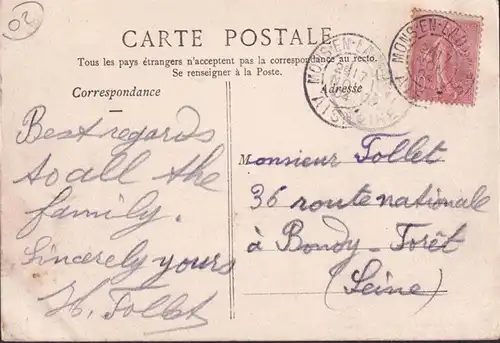 02
CARTE POSTALE
Tous les pays étrangers n'acceptent pas la correspondance au recto.
Se renseigner à la Poste.
Correspondance
Adresse
MONS-EN-LAONNOIS
AISNE
Best regards
to all the
family.
Sincerely yours
H. Follet
Monsieur Follet
36 route nationale
à Bondy-Forêt
(Seine)